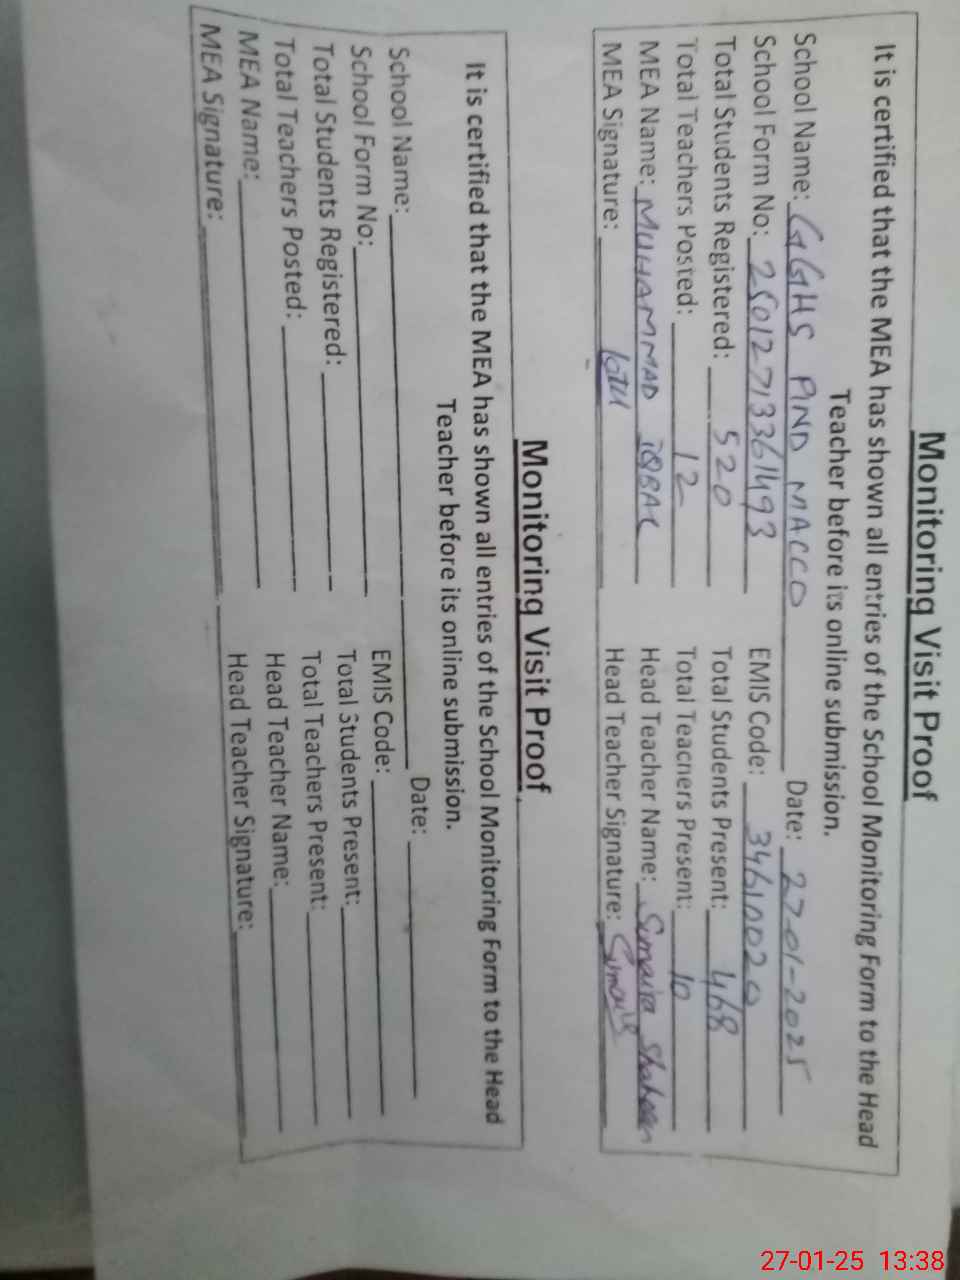 Monitoring Visit Proof
It is certified that the MEA has shown all entries of the School Monitoring Form to the Head
Teacher before its online submission.
School Name: GGHS PIND MACCO Date: 27-01-2025
School Form No: 25012713361493 EMIS Code: 34610020
Total Students Registered: 520 Total Students Present: 468
Total Teachers Posted: 12 Total Teachers Present: 10
MEA Name: MUHAMMAD IQBAL Head Teacher Name: Sumaira Shaheen
MEA Signature: Head Teacher Signature:
Monitoring Visit Proof
It is certified that the MEA has shown all entries of the School Monitoring Form to the Head
Teacher before its online submission.
School Name: Date:
School Form No: EMIS Code:
Total Students Registered: Total Students Present:
Total Teachers Posted: Total Teachers Present:
MEA Name: Head Teacher Name:
MEA Signature: Head Teacher Signature:
27-01-25 13:38